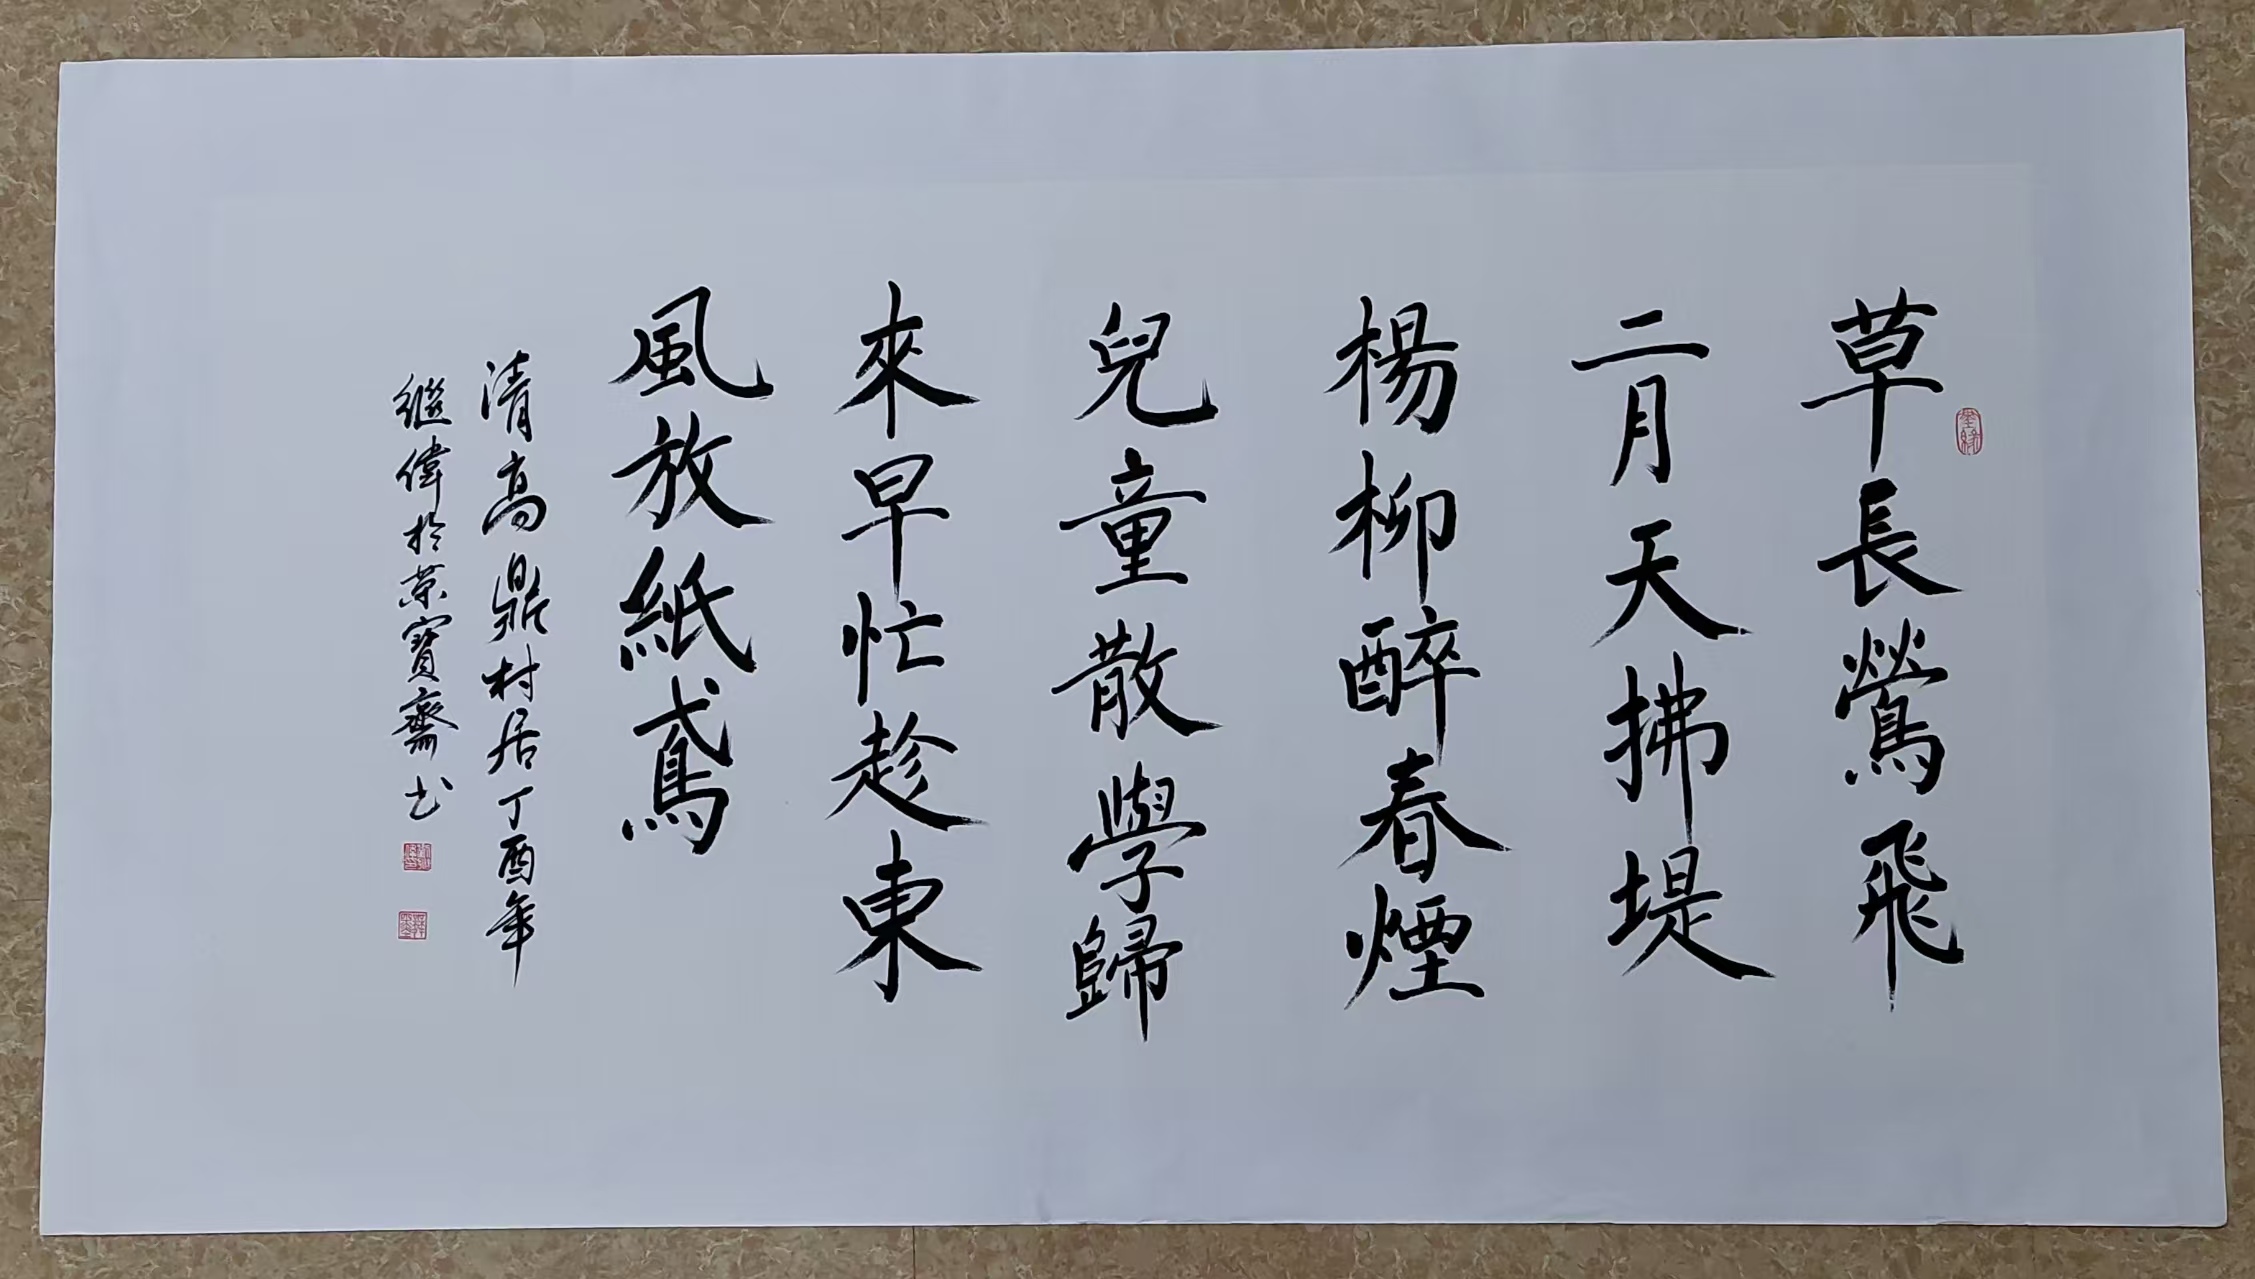 草長鶯飛
二月天拂堤
楊柳醉春煙
兒童散學歸
來早忙趁東
風放紙鳶
清高鼎村居丁酉年
繼偉於荣寶齋书